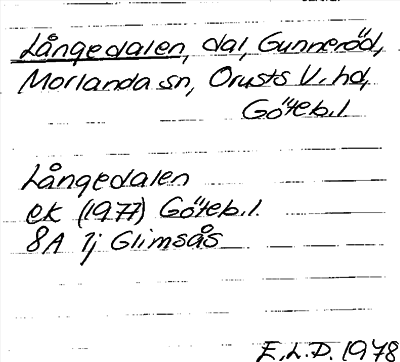 Långedalen, dal, Gunneröd,
Morlanda sn, Orusts V. hd,
Göteb.l.
Långedalen
ek (1977) Göteb.l.
8A 7j Glimsås
E.L.D. 1978